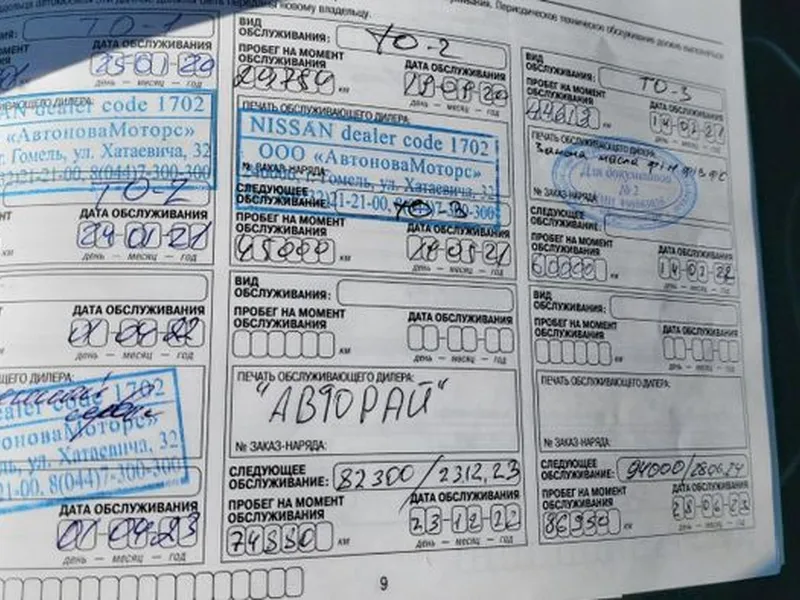 ТО-1
ДАТА ОБСЛУЖИВАНИЯ
25 01 20
день — месяц — год
dealer code 1702
«АвтоноваМоторс»
г. Гомель, ул. Хатаевича, 32
21-21-00, 8(044)7-300-300
ТО-2
ДАТА ОБСЛУЖИВАНИЯ
24 01 21
день — месяц — год
ДАТА ОБСЛУЖИВАНИЯ
01 04 22
день — месяц — год
ДИЛЕРА:
dealer code 1702
ул. Хатаевича, 32
21-00, 8(044)7-300-300
ДАТА ОБСЛУЖИВАНИЯ
01 04 23
день — месяц — год
ВИД
ОБСЛУЖИВАНИЯ:
ТО-2
ПРОБЕГ НА МОМЕНТ
ОБСЛУЖИВАНИЯ
29784 км
ДАТА ОБСЛУЖИВАНИЯ
день — месяц — год
ПЕЧАТЬ ОБСЛУЖИВАЮЩЕГО ДИЛЕРА:
NISSAN dealer code 1702
ООО «АвтоноваМоторс»
№ ЗАКАЗ-НАРЯДА:
г. Гомель, ул. Хатаевича, 32
СЛЕДУЮЩЕЕ
ОБСЛУЖИВАНИЕ:
ТО-3
21-21-00, 8(044)7-300-300
ПРОБЕГ НА МОМЕНТ
ОБСЛУЖИВАНИЯ
45000 км
ДАТА ОБСЛУЖИВАНИЯ
день — месяц — год
ВИД
ОБСЛУЖИВАНИЯ:
ПРОБЕГ НА МОМЕНТ
ОБСЛУЖИВАНИЯ
км
ДАТА ОБСЛУЖИВАНИЯ
день — месяц — год
ПЕЧАТЬ ОБСЛУЖИВАЮЩЕГО ДИЛЕРА:
"АВТОРАЙ"
№ ЗАКАЗ-НАРЯДА:
СЛЕДУЮЩЕЕ
ОБСЛУЖИВАНИЕ:
82300/23.12.23
ПРОБЕГ НА МОМЕНТ
ОБСЛУЖИВАНИЯ
км
ДАТА ОБСЛУЖИВАНИЯ
23 12 22
день — месяц — год
ВИД
ОБСЛУЖИВАНИЯ:
ТО-3
ПРОБЕГ НА МОМЕНТ
ОБСЛУЖИВАНИЯ
км
ДАТА ОБСЛУЖИВАНИЯ
14 02 21
день — месяц — год
ПЕЧАТЬ ОБСЛУЖИВАЮЩЕГО ДИЛЕРА:
Замена масла
Для документов
№ 2
№ ЗАКАЗ-НАРЯДА:
СЛЕДУЮЩЕЕ
ОБСЛУЖИВАНИЕ:
ПРОБЕГ НА МОМЕНТ
ОБСЛУЖИВАНИЯ
60000 км
ДАТА ОБСЛУЖИВАНИЯ
14 02 22
день — месяц — год
ВИД
ОБСЛУЖИВАНИЯ:
ПРОБЕГ НА МОМЕНТ
ОБСЛУЖИВАНИЯ
км
ДАТА ОБСЛУЖИВАНИЯ
день — месяц — год
ПЕЧАТЬ ОБСЛУЖИВАЮЩЕГО ДИЛЕРА:
№ ЗАКАЗ-НАРЯДА:
СЛЕДУЮЩЕЕ
ОБСЛУЖИВАНИЕ:
94000/28.06.24
ПРОБЕГ НА МОМЕНТ
ОБСЛУЖИВАНИЯ
км
ДАТА ОБСЛУЖИВАНИЯ
28 06 23
день — месяц — год
9